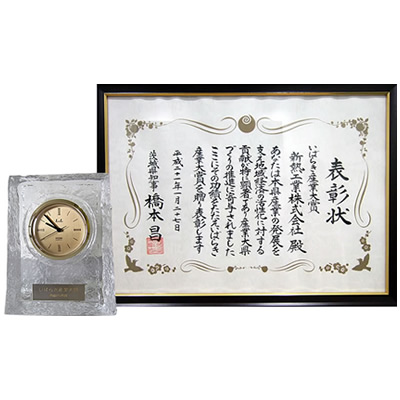 表彰状
いばらき産業大賞
新熱工業株式会社 殿
あなたは本県産業の発展を
支え地域経済の活性化に対する
貢献が特に顕著であり産業大県
づくりの推進に寄与されました
ここにその功績をたたえいばらき
産業大賞を贈り表彰します
平成二十一年一月二十七日
茨城県知事 橋本 昌